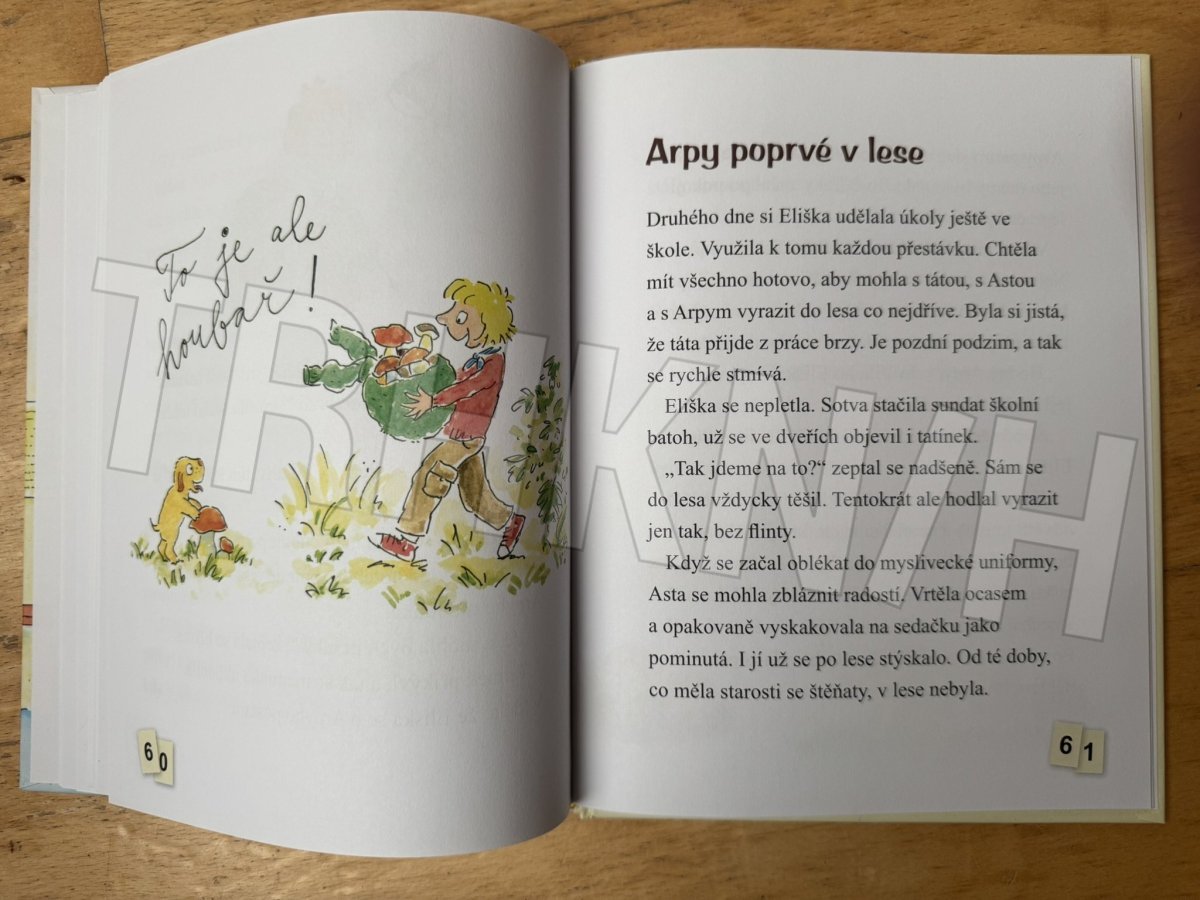 To je ale
houbař!
60
Arpy poprvé v lese
Druhého dne si Eliška udělala úkoly ještě ve
škole. Využila k tomu každou přestávku. Chtěla
mít všechno hotovo, aby mohla s tátou, s Astou
a s Arpym vyrazit do lesa co nejdříve. Byla si jistá,
že táta přijde z práce brzy. Je pozdní podzim, a tak
se rychle stmívá.
Eliška se nepletla. Sotva stačila sundat školní
batoh, už se ve dveřích objevil i tatínek.
„Tak jdeme na to?“ zeptal se nadšeně. Sám se
do lesa vždycky těšil. Tentokrát ale hodlal vyrazit
jen tak, bez flinty.
Když se začal oblékat do myslivecké uniformy,
Asta se mohla zbláznit radostí. Vrtěla ocasem
a opakovaně vyskakovala na sedačku jako
pominutá. I jí už se po lese stýskalo. Od té doby,
co měla starosti se štěňaty, v lese nebyla.
61